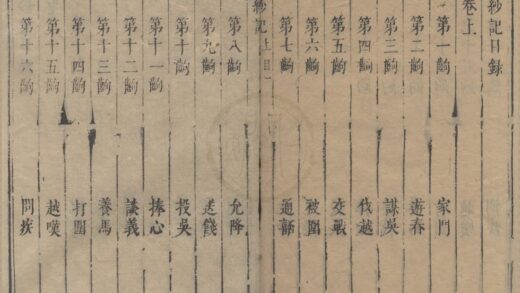 紗記目錄
卷上
第一齣 家門
第二齣 遊春
第三齣 謀吳
第四齣 伐越
第五齣 交戰
第六齣 被圍
第七齣 通嚭
紗記 上目 一
第八齣 允降
第九齣 送餞
第十齣 投吳
第十一齣 捧心
第十二齣 談義
第十三齣 養馬
第十四齣 打圍
第十五齣 越嘆
第十六齣 問疾